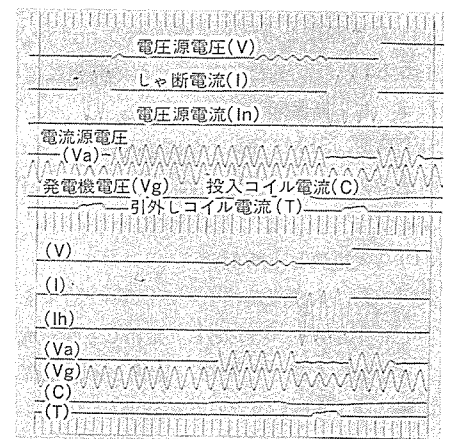 電圧源電圧(V)
しゃ断電流(I)
電圧源電流(In)
電流源電圧
(Va)
発電機電圧(Vg) 投入コイル電流(C)
引外しコイル電流(T)
(V)
(I)
(Ih)
(Va)
(Vg)
(C)
(T)